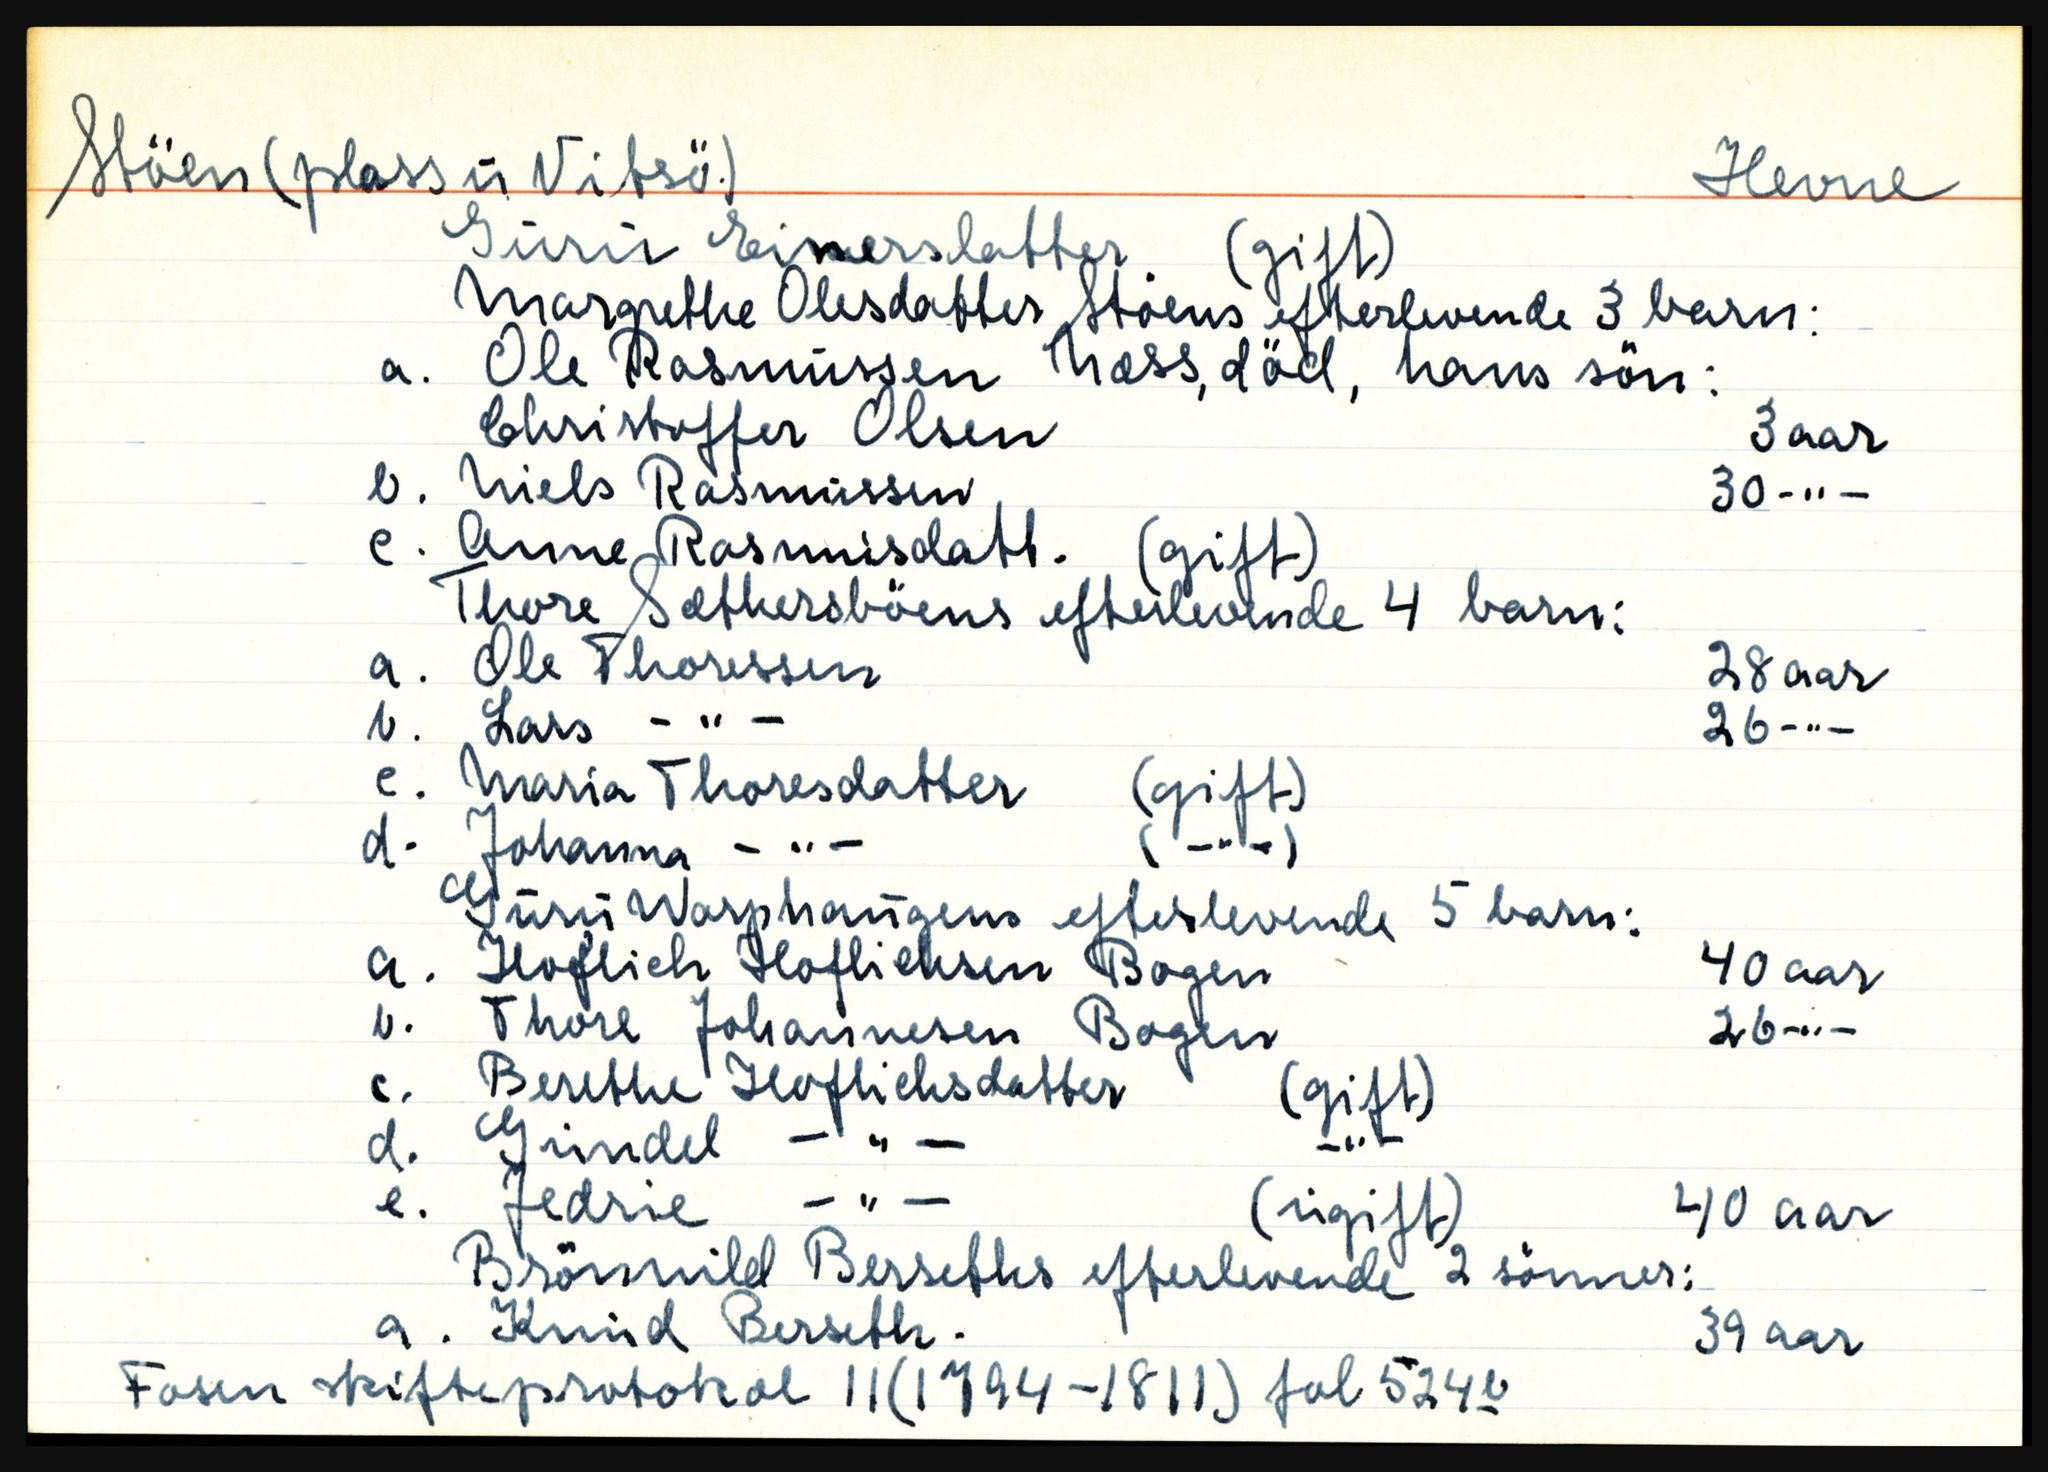 Stöen (plass u Vitsö.) Hevne
Guru Einerslatter (gift)
Margrethe Olesdatter Stöens efterlevende 3 barn:
a. Ole Rasmussen Næss, död, hans sön:
Christoffer Olsen 3 aar
b. Niels Rasmussen 30 -"-
c. Anne Rasmusdatt. (gift)
Thore Sæthersböens efterlevende 4 barn:
a. Ole Thoressen 28 aar
b. Lars -"- 26 -"-
c. Maria Thoresdatter (gift)
d. Johanna -"- (-"-)
Guru Warphaugens efterlevende 5 barn:
a. Hoflich Hoflichsen Bogen 40 aar
b. Thore Johannesen Bogen 26 -"-
c. Berethe Hoflichsdatter (gift)
d. Gundel -"- -"-
e. Jedrie -"- (ugift) 40 aar
Brönnild Berseths efterlevende 2 sönner:
a. Knud Berseth. 39 aar
Fosen skifteprotokol 11 (1794-1811) fol 524b